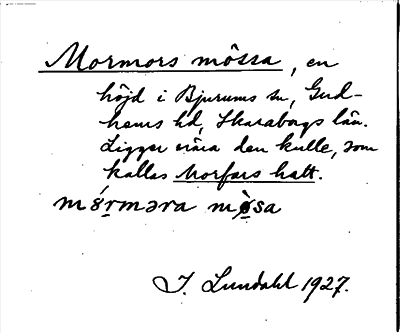 Mormors mössa, en
höjd i Bjurums sn, Gud-
hems hd, Skaraborgs län.
Ligger nära den kulle, som
kallas Morfars hatt.
J. Lundahl 1927.